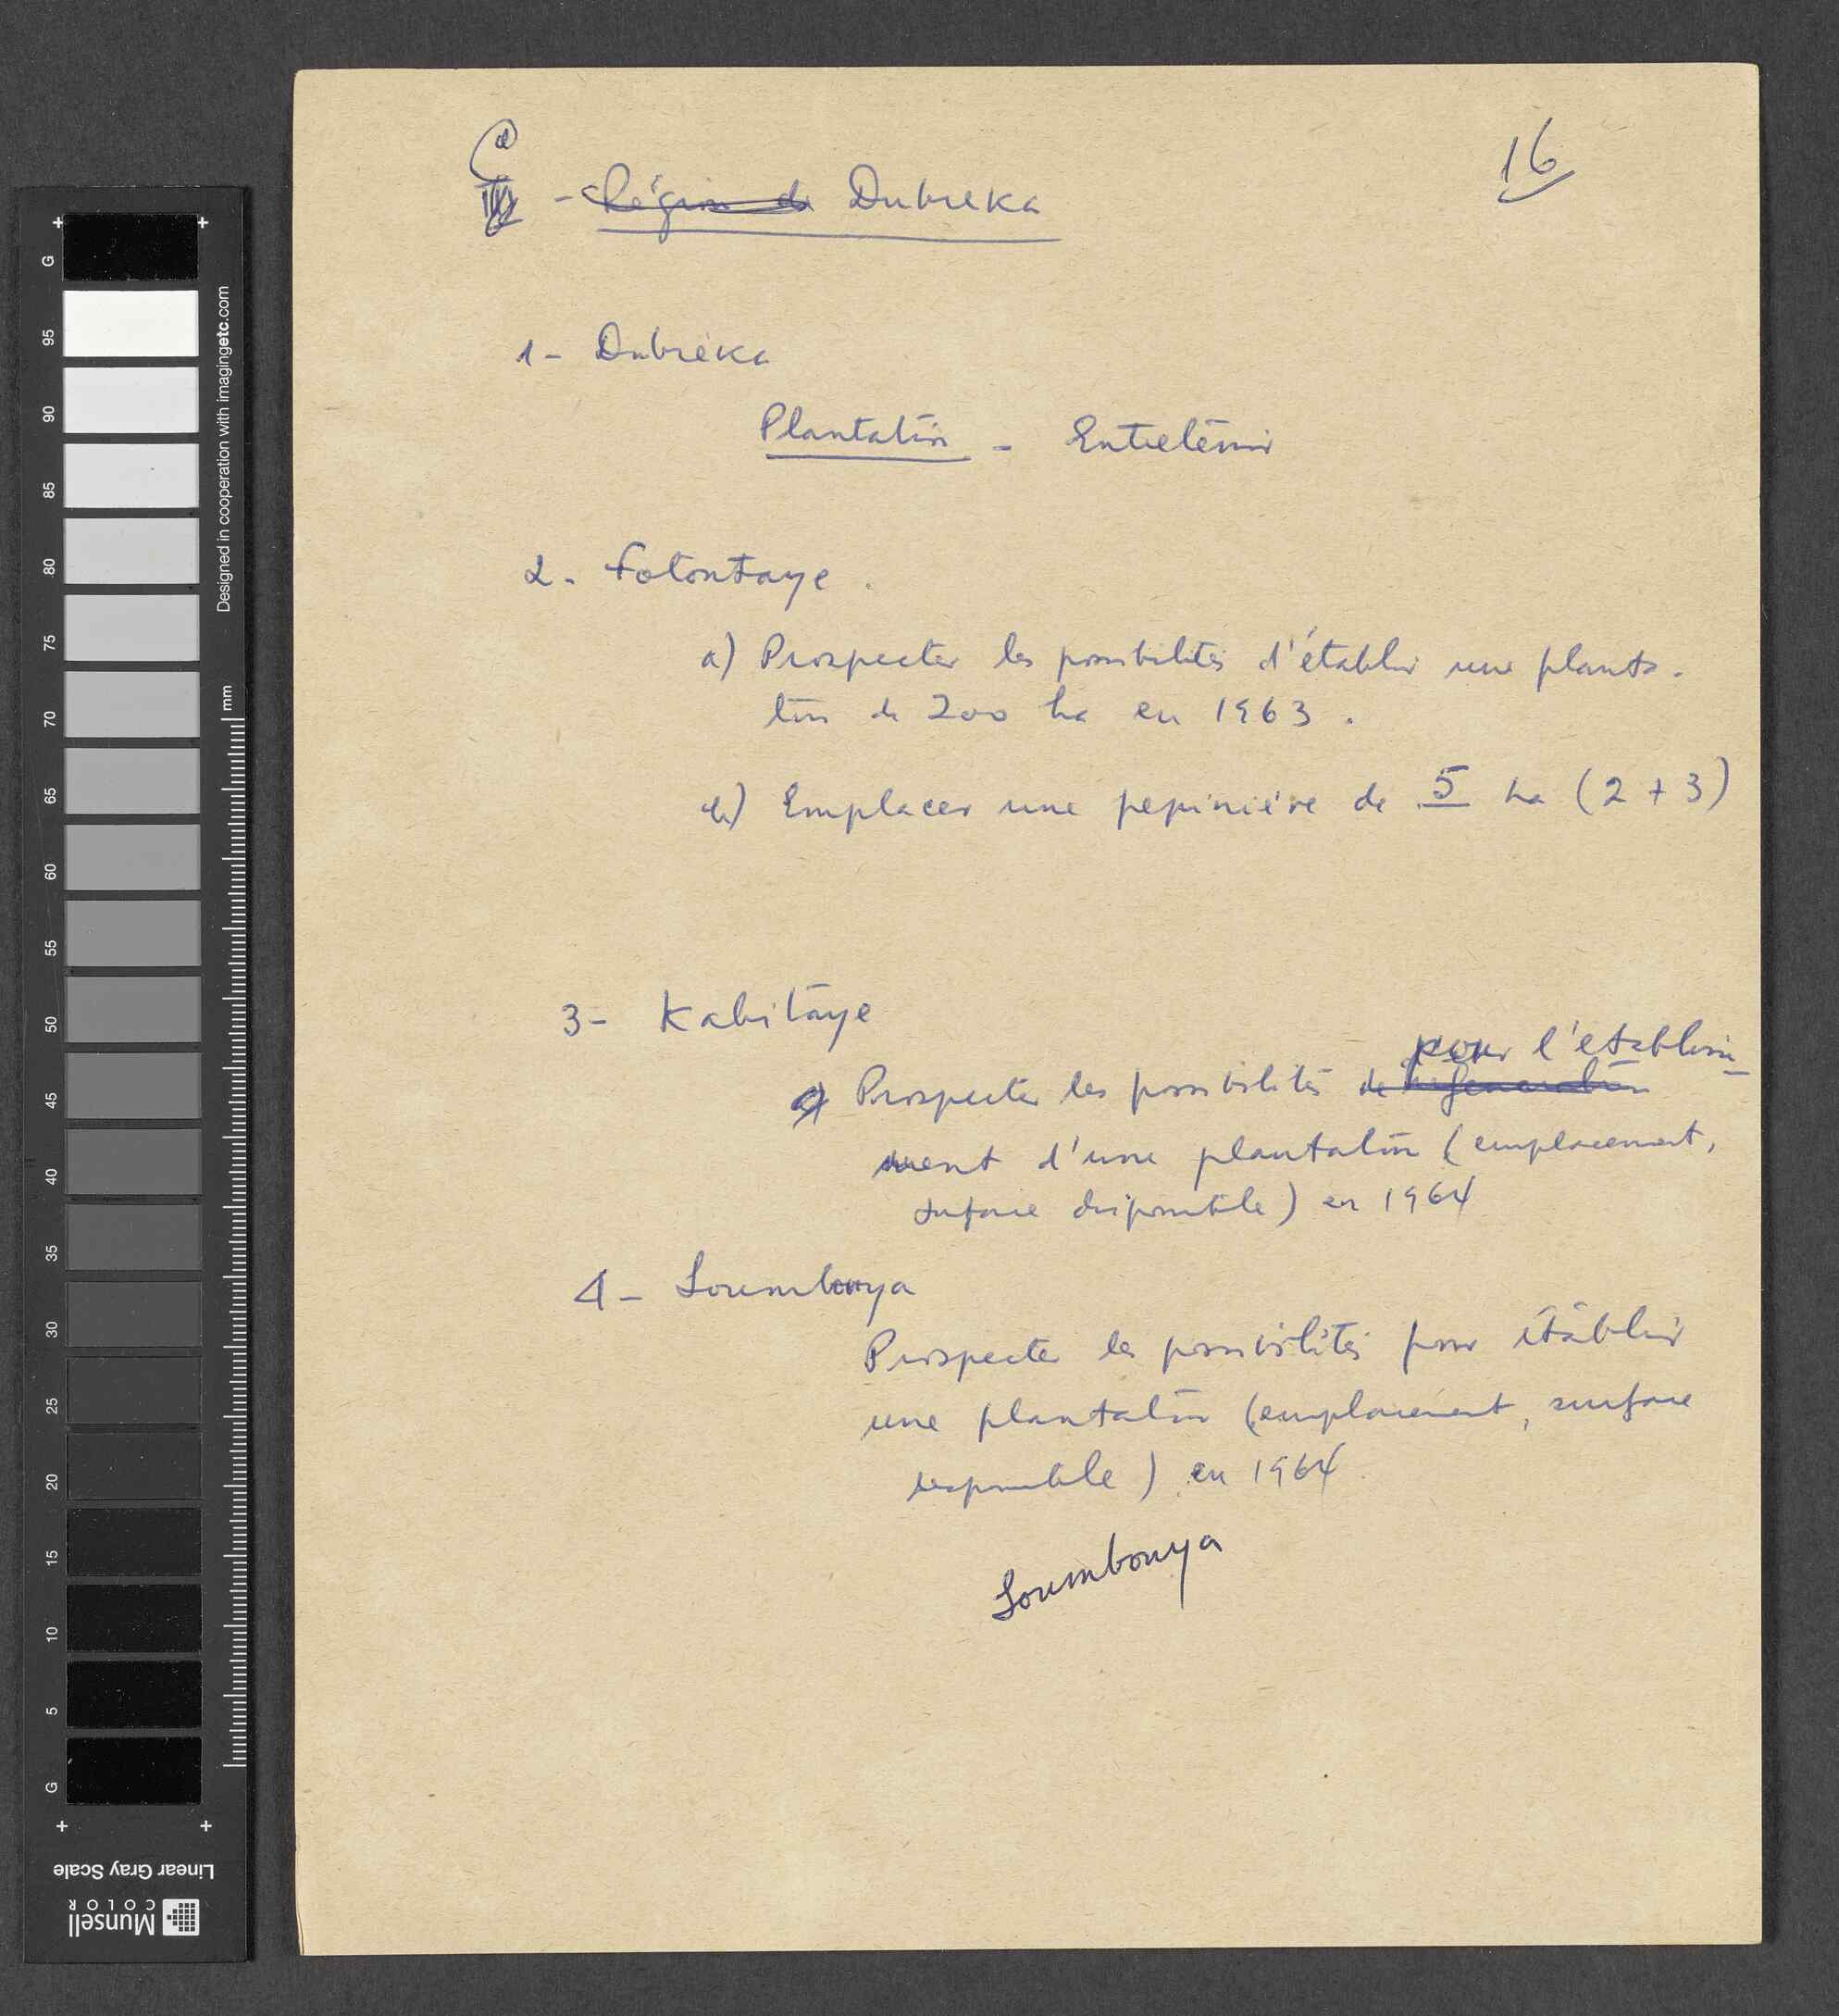 16
d
- Région de Dubreka
1- Dubréka
Plantation - Entretenir
2. Fotontaye.
a) Prospecter les possibilités d'établir une planta-
tion de 200 ha en 1963.
b) Emplacer une pepinière de 5 ha (2 + 3)
3- Kabitaye
pour l'etablisse-
a) Prospecter les possibilités de regeneration
ment d'une plantation (emplacement,
surface disponible) en 1964
4- Soumbouya
Prospecter les possibilités pour établir
une plantation (emplacement, surface
disponible) en 1964
Soumbouya
+ +
G
95
90
85
80
75
70
65
60
55
50
45
40
35
30
25
20
15
10
5
G
+ +
Designed in cooperation with imagingetc.com
mm
Linear Gray Scale
Munsell
COLOR